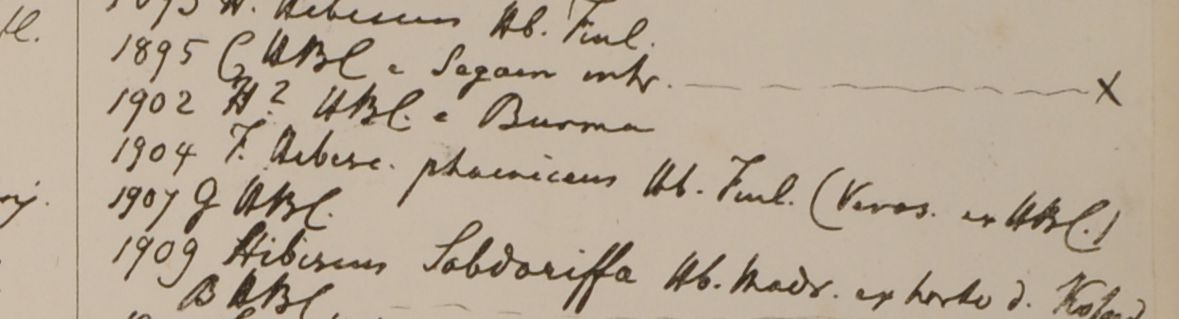 H. Hibiscus Hb. Finl.
1895 G HBC e Segaen intr. x
1902 H? HBC. e Burma
1904 F. Hibisc. phoeniceus Hb. Finl. (Veros. ex HBC.)
1907 G HBC.
1909 Hibiscus Sabdariffa Hb. Madr. ex horto d.
B HBC